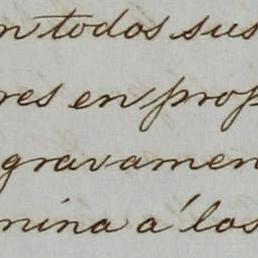 n todos sus
res en prop
gravamen
mina a' los